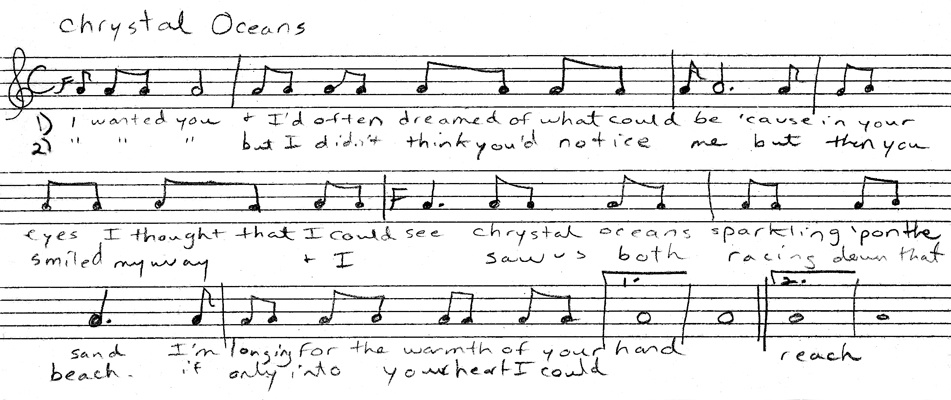 Chrystal Oceans
1) I wanted you + I'd often dreamed of what could be 'cause in your
2) " " " but I didn't think you'd notice me but then you
eyes I thought that I could see chrystal oceans sparkling 'pon the
smiled my way + I saw us both racing down that
1. 2.
sand I'm longing for the warmth of your hand reach
beach. if only into your heart I could